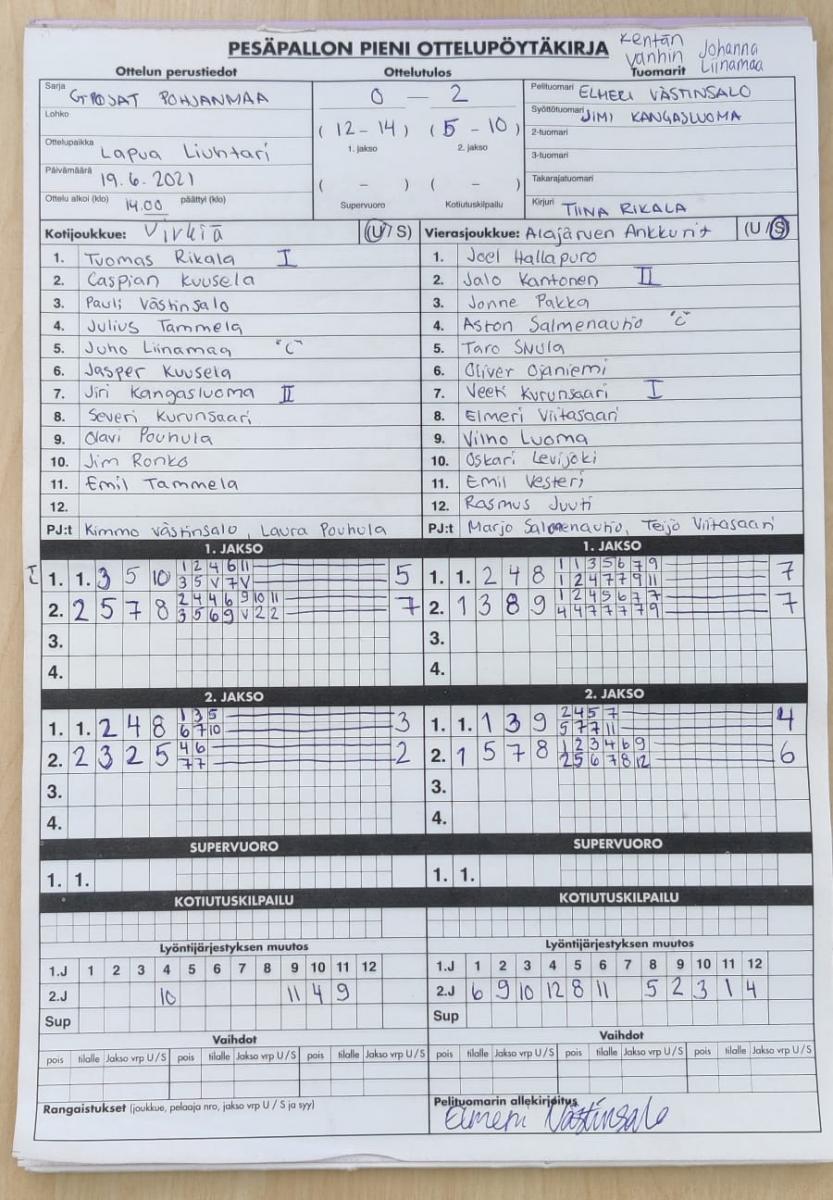 PESÄPALLON PIENI OTTELUPÖYTÄKIRJA
Kentän vanhin Johanna Liinamaa
Ottelun perustiedot Ottelutulos Tuomarit
Sarja POHJANMAA
Lohko
Ottelupaikka Lapua Liuhtari
Päivämäärä 19.6.2021
Ottelu alkoi (klo) 14.00 päättyi (klo)
0 — 2
(12 - 14) (5 - 10)
1. jakso 2. jakso
( - ) ( - )
Supervuoro Kotiutuskilpailu
Pelituomari ELMERI VÄSTINSALO
Syöttötuomari JIMI KANGASLUOMA
2-tuomari
3-tuomari
Takarajatuomari
Kirjuri TIINA RIKALA
Kotijoukkue: Virkiä (U/S)
1. Tuomas Rikala I
2. Caspian Kuusela
3. Pauli Västinsalo
4. Julius Tammela
5. Juho Liinamaa "C"
6. Jasper Kuusela
7. Jiri Kangasluoma II
8. Severi Kurunsaari
9. Olavi Pouhula
10. Jim Ronko
11. Emil Tammela
12.
PJ:t Kimmo Västinsalo, Laura Pouhula
Vierasjoukkue: Alajärven Ankkurit (U/S)
1. Joel Hallapuro
2. Jalo Kantonen II
3. Jonne Pakka
4. Aston Salmenautio "C"
5. Taro
6. Oliver Ojaniemi
7. Veeti Kurunsaari I
8. Elmeri Viitasaari
9. Vilho Luoma
10. Oskari Levijoki
11. Emil Vesteri
12. Rasmus Juuti
PJ:t Marjo Salmenautio, Teijo Viitasaari
1. JAKSO
1. 1. 3 5 10 1 2 4 6 11 5
3 5 V 7 V
2. 2 5 7 8 2 4 4 6 9 10 11 7
3 5 6 9 V 2 2
3.
4.
1. JAKSO
1. 1. 2 4 8 1 1 3 5 6 7 9 7
1 2 4 7 7 9 11
2. 1 3 8 9 1 2 4 5 6 7 7 7
4 4 7 7 7 7 9
3.
4.
2. JAKSO
1. 1. 2 4 8 1 3 5 3
6 7 10
2. 2 3 2 5 4 6 2
7 7
3.
4.
2. JAKSO
1. 1. 1 3 9 2 4 5 7 4
5 7 7 11
2. 1 5 7 8 1 2 3 4 6 9 6
2 5 6 7 8 12
3.
4.
SUPERVUORO
1. 1.
SUPERVUORO
1. 1.
KOTIUTUSKILPAILU
KOTIUTUSKILPAILU
Lyöntijärjestyksen muutos
1.J 1 2 3 4 5 6 7 8 9 10 11 12
2.J 10 11 4 9
Sup
Lyöntijärjestyksen muutos
1.J 1 2 3 4 5 6 7 8 9 10 11 12
2.J 6 9 10 12 8 11 5 2 3 1 4
Sup
Vaihdot
pois tilalle Jakso vrp U/S pois tilalle Jakso vrp U/S pois tilalle Jakso vrp U/S
Vaihdot
pois tilalle Jakso vrp U/S pois tilalle Jakso vrp U/S pois tilalle Jakso vrp U/S
Rangaistukset (joukkue, pelaaja nro, jakso vrp U / S ja syy)
Pelituomarin allekirjoitus
Elmeri Västinsalo